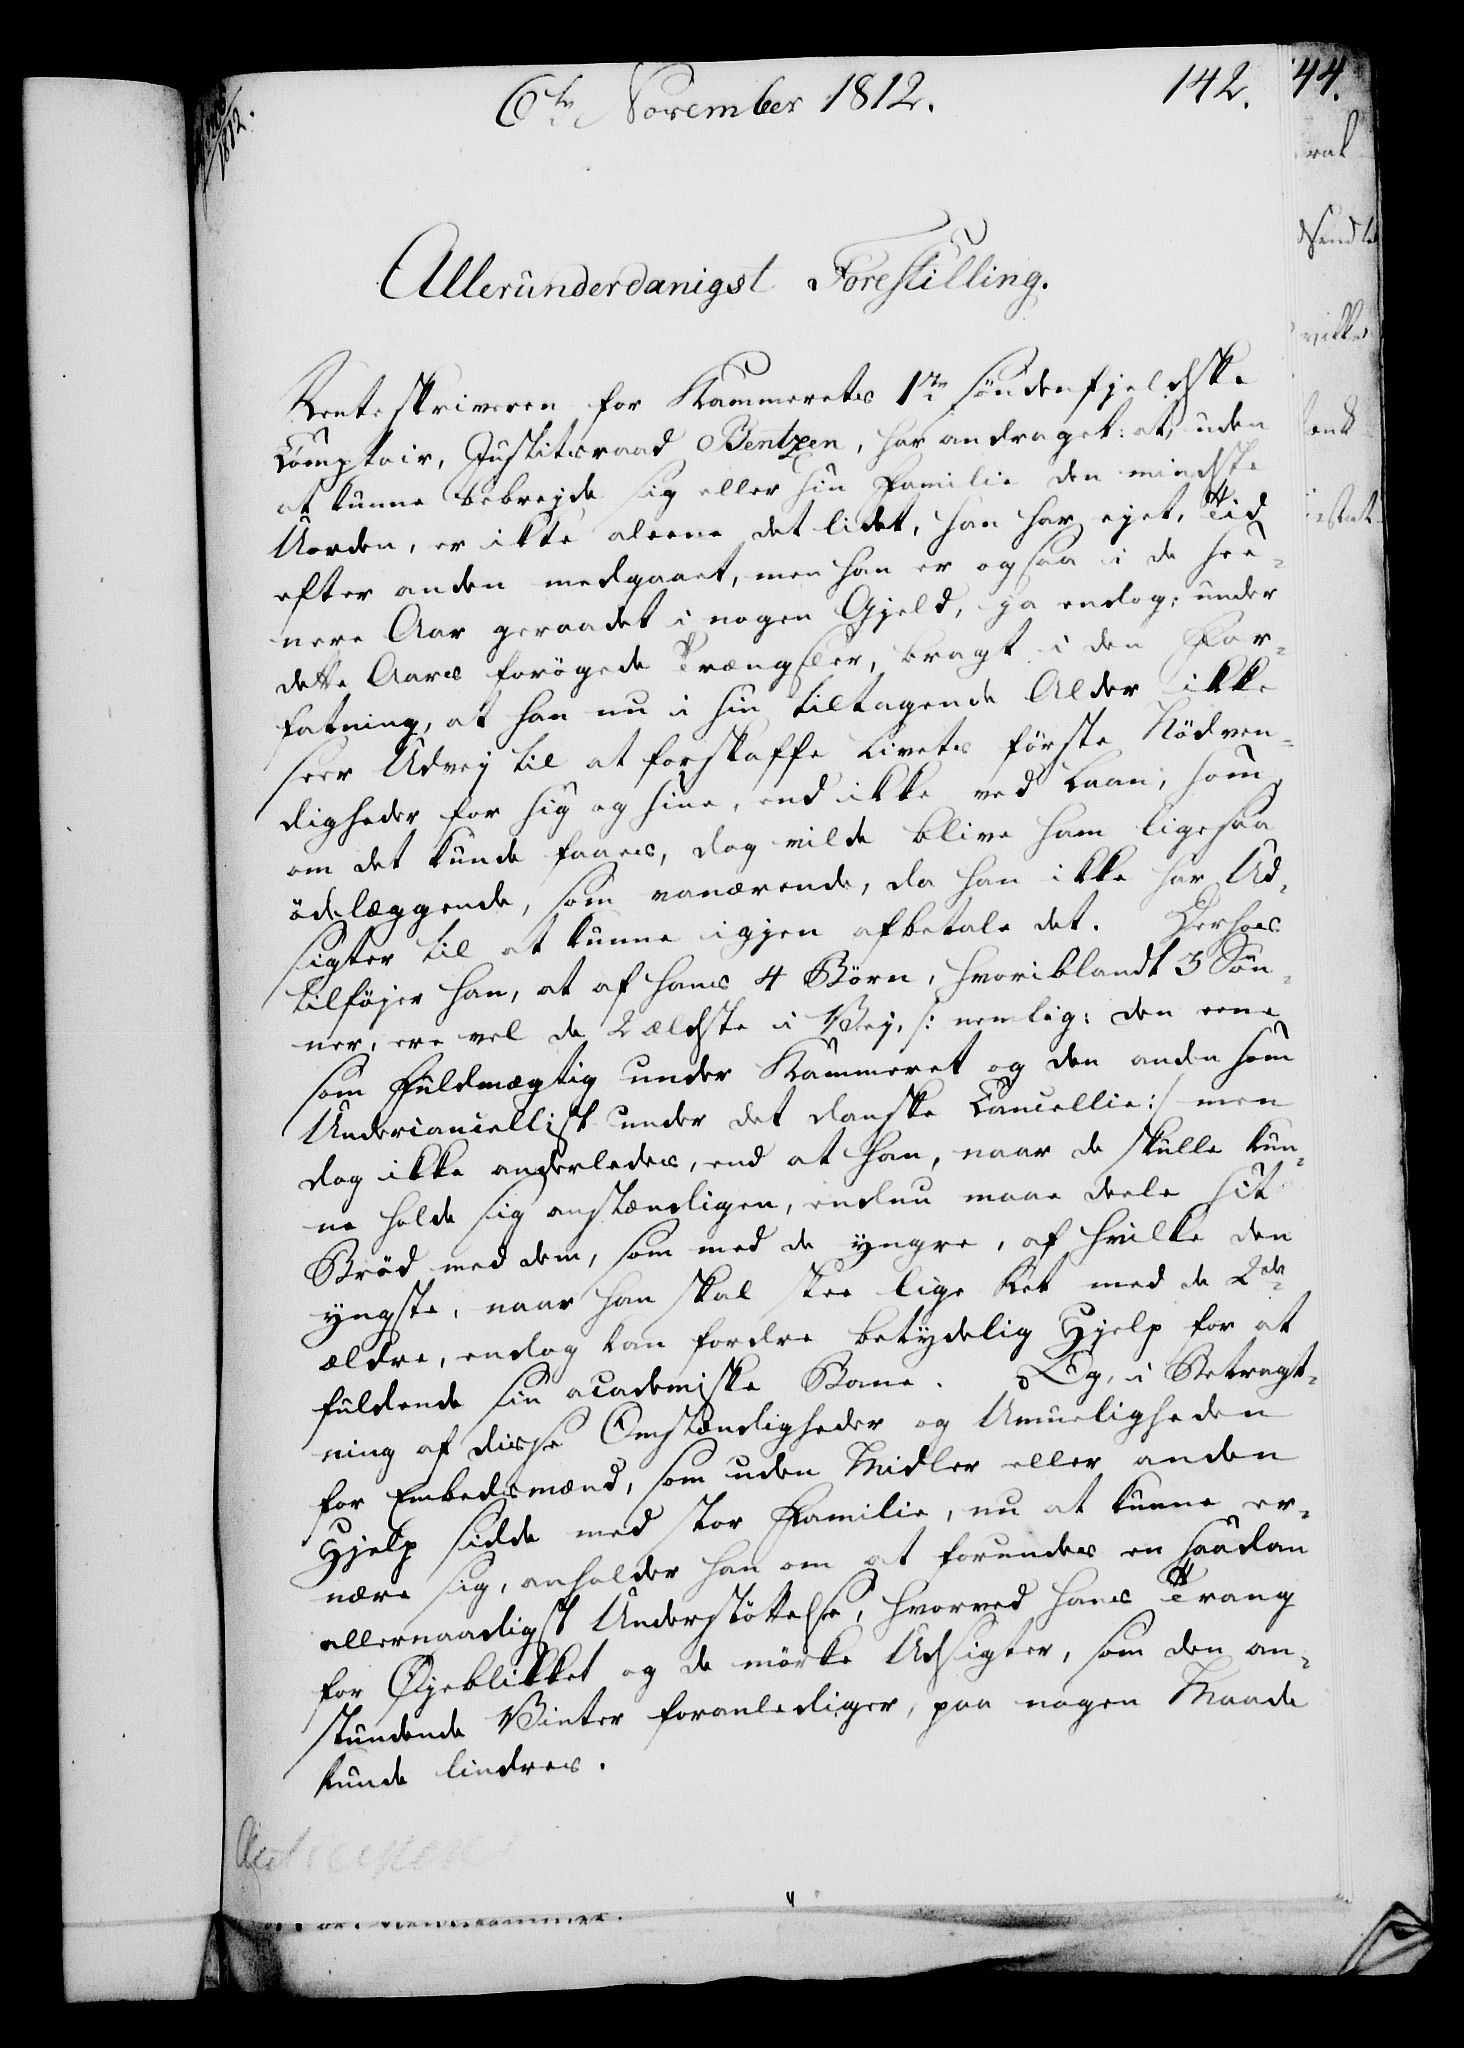 6te November 1812.
142.
44.
1812.
Allerunderdanigst Forestilling.
Renteskriveren for Kammerets 1ste söndenfjeldske
Comptoir, Justitsraad Bentzen, har andraget: at, uden
at kunne bebrejde sig eller sin Familie den mindste
Uorden, er ikke aleene det lidet, han har ejet, Tid
efter anden medgaaet, men han er ogsaa i de see-
nere Aar geraadet i nogen Gjeld, ja endog, under
dette Aars forögede Trængsler, bragt i den For-
fatning, at han nu i sin tiltagende Alder ikke
seer Udvej til at forskaffe Livets förste Nödven-
digheder for sig og sine, end ikke ved Laan, som,
om det kunde faaes, dog vilde blive ham ligesaa
ödelæggende, som vanærende, da han ikke har Ud-
sigter til at kunne igjen afbetale det. Derhos
tilföjer han, at af hans 4 Börn, hvoriblandt 3 Sön-
ner, ere vel de 2 ældste i Vej, /: nemlig: den eene
som Fuldmægtig under Kammeret og den anden som
Undercancellist under det danske Cancellie :/ men
dog ikke anderledes, end at han, naar de skulle kun-
ne holde sig anstændigen, endnu maae deele sit
Bröd med dem, som med de yngre, af hvilke den
yngste, naar han skal skee lige Ret med de 2de
ældre, endog kan fordre betydelig Hjelp for at
fuldende sin academiske Bane. Og, i Betragt-
ning af disse Omstændigheder og Umueligheden
for Embedsmænd, som uden Midler eller anden
Hjelp sidde med stor Familie, nu at kunne er-
nære sig, anholder han om at forundes en saadan
allernaadigst Understöttelse, hvorved hans Trang
for Øjeblikket og de mörke Udsigter, som den an-
stundende Vinter foranlediger, paa nogen Maade
kunde lindres.